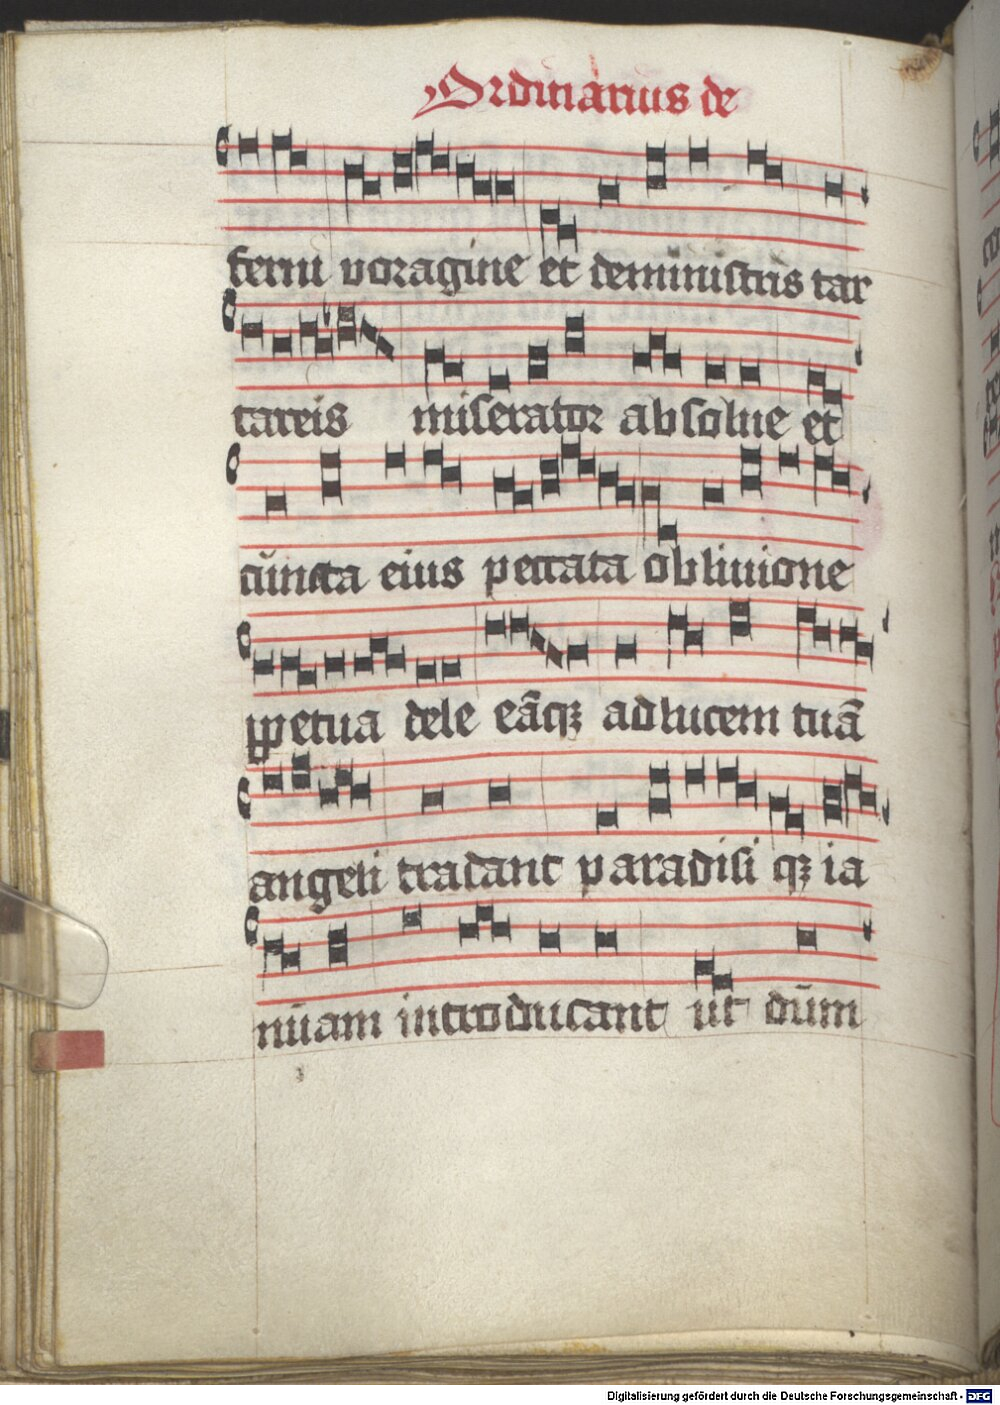 Ordinarius de
ferni voragine et deministris tar
tareis miserator absolue et
cuncta eius peccata obliuione
ꝑpetua dele eāqꝫ ad lucem tuā
angeli tradant paradisi qꝫ ia
nuam introducant ut dum
Digitalisierung gefördert durch die Deutsche Forschungsgemeinschaft - DFG